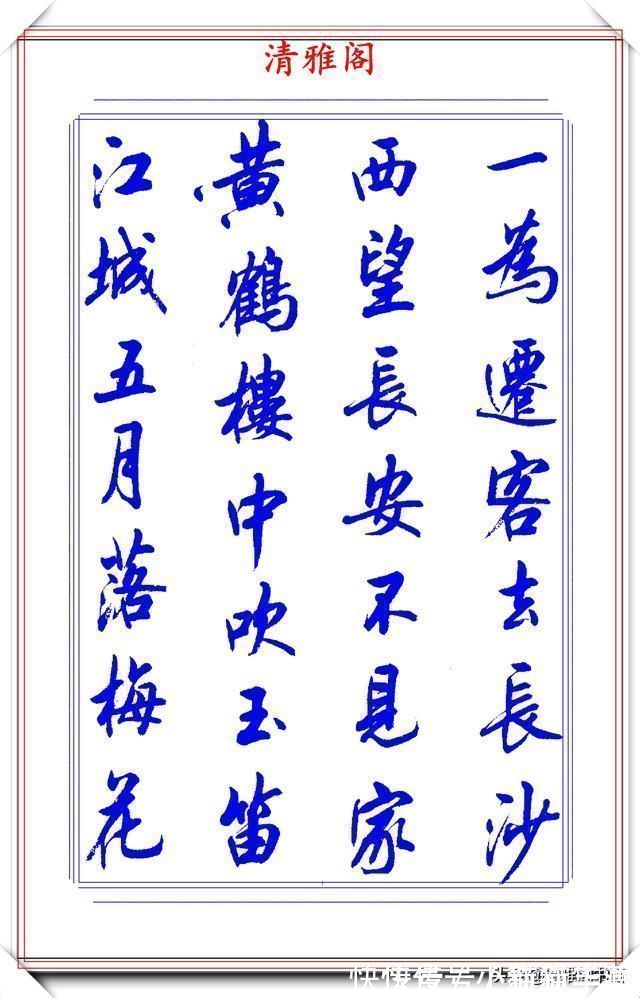 清雅阁
一為遷客去長沙
西望長安不見家
黄鶴樓中吹玉笛
江城五月落梅花